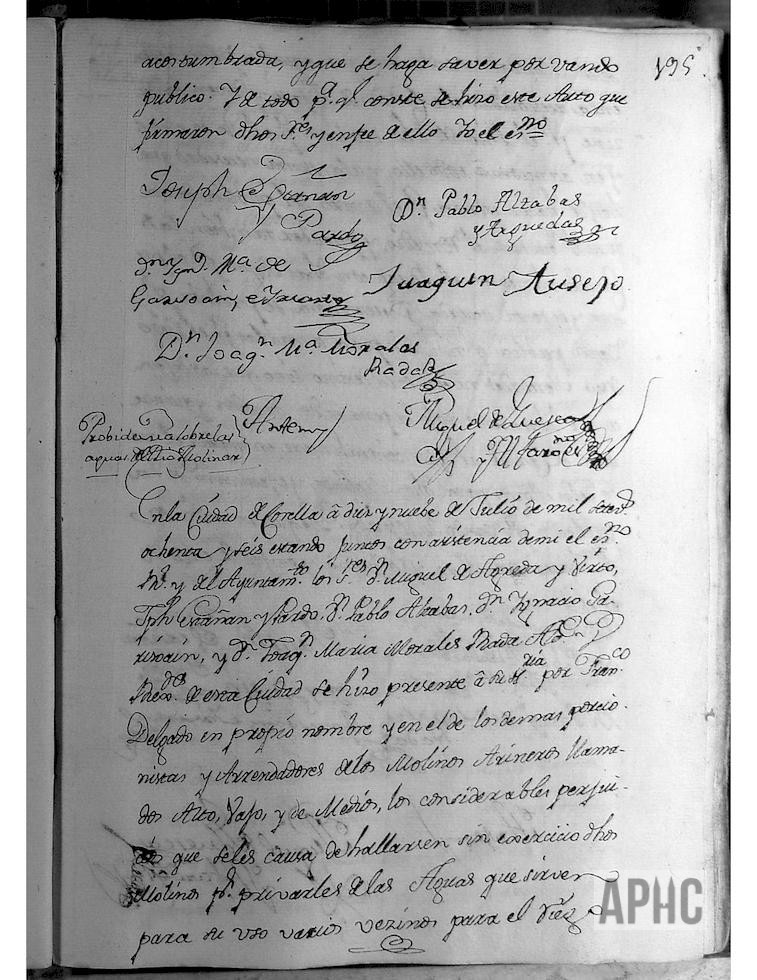 195
acostumbrada, y que se haga saver por vando
publico. Y de todo pa. qe. conste se hizo este Auto que
firmaron dhos Ses. y en fee de ello Yo el esno
Joseph
y Pardo
Dn. Pablo Alzabas
y Arguedas
Dn. Ygno. Ma. de
Garisoain,
Juaquin Ausejo
Dn. Joaqn. Ma. Morales
Rada
Antemi
Miguel de Luesea
esno
Probidenzia sobre las
aguas del Molinar
En la Ciudad de Corella â diez y nuebe de Julio de mil setezs.
ochenta y seis estando juntos con asistencia de mi el esno.
Rl. y del Ayuntamto. los Ses. Dn. Miguel de Agreda y
Jph y Pardo, Dn. Pablo Alzabas, Dn. Ygnacio Ga-
risoain, y Dn. Joaqn. Maria Morales Rada
de esta Ciudad se hizo presente â su Sria por Franco
Delgado en propio nombre y en el de los demas porcio-
nistas y Arrendadores de los Molinos Arineros llama-
dos Alto, Vajo, y de Medio, los considerables perjui-
cios que se les causa de hallarsen sin exercicio dhos
Molinos pr. privarles de las Aguas que sirven
para su uso varios vezinos para el
APHC